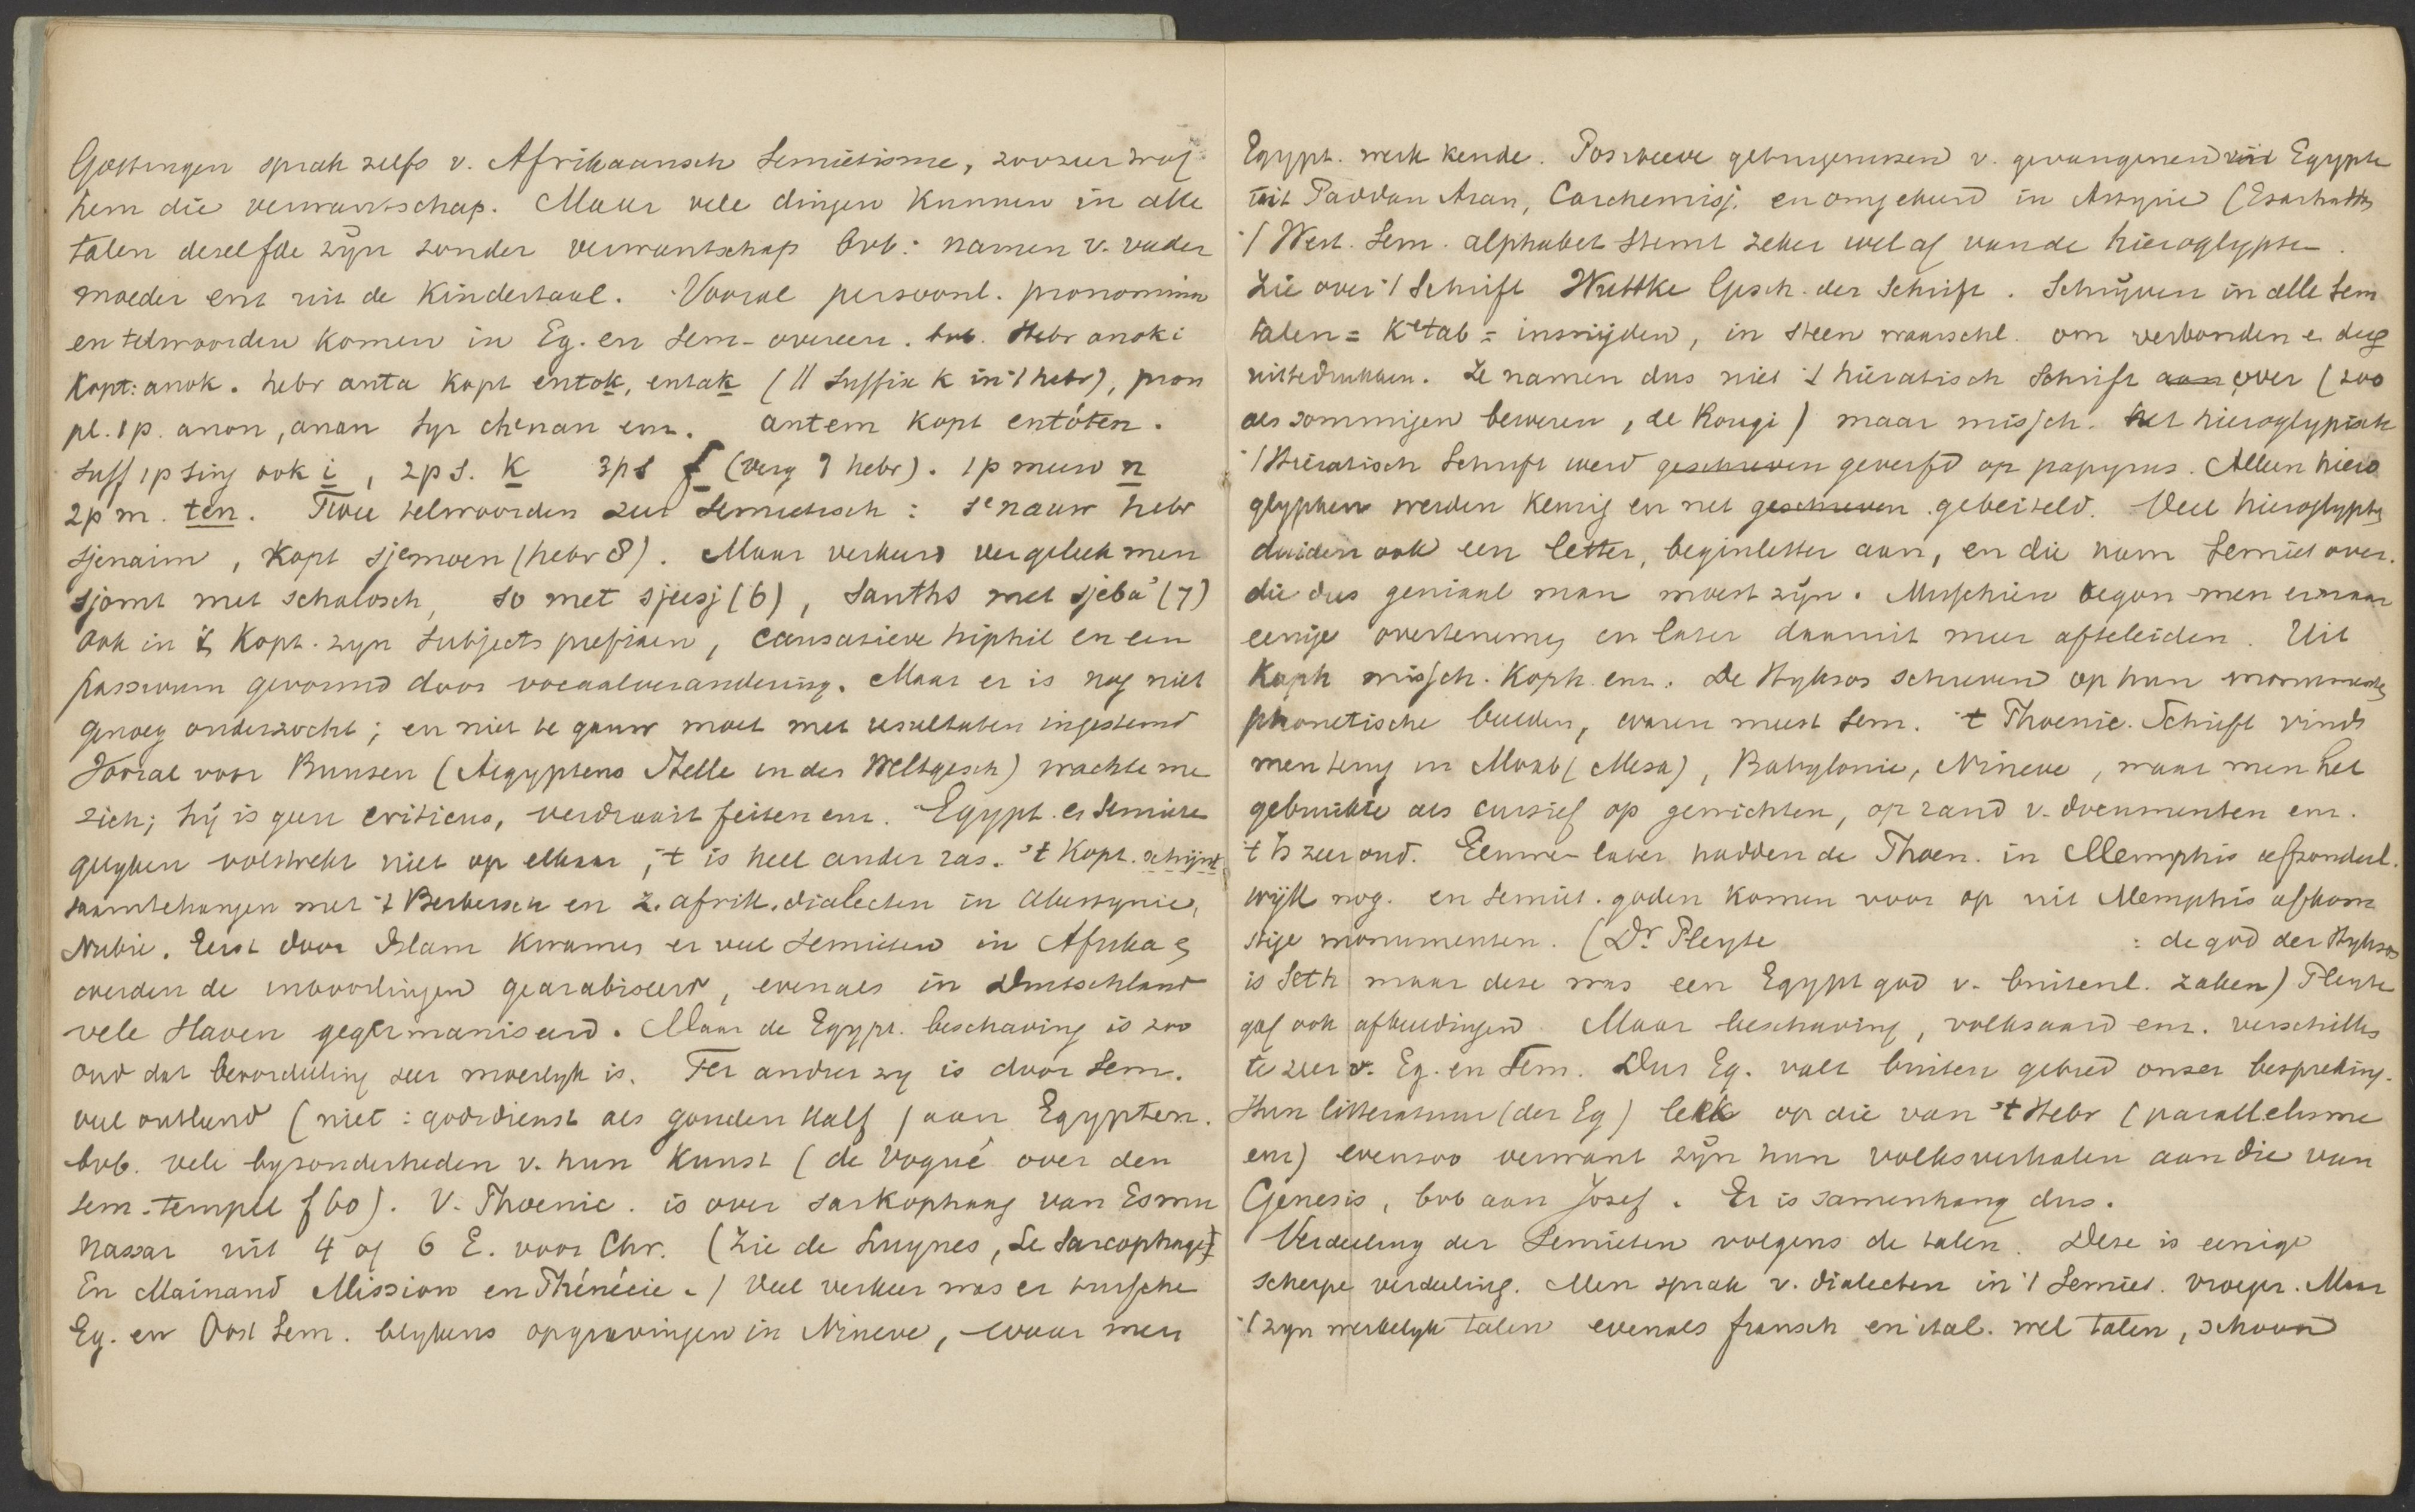 Göttingen sprak zelfs v. Afrikaansch Semietisme, zoozeer trof
hem die verwantschap. Maar vele dingen kunnen in alle
talen deselfde zijn zonder verwantschap bvb: namen v. vader
moeder enz uit de Kindertaal. Vooral persoonl. pronomina
en telwoorden komen in Eg. en Sem. overeen. bvb. Hebr anoki
Kopt: anok. hebr anta kopt entok, entak (ll Suffix K in 't hebr), pron
pl. 1p. anon, anan Syr chenan enz. antem kopt entóten.
Suff 1p sing ook i, 2p s. K 3ps f (verg hebr). 1p meerv n
2p m. ten. Twee telwoorden zeer Semietisch: senauw hebr
sjenaim, Kopt sjemoen (hebr 8). Maar verkeerd vergeleek men
sjomt met schalosch, so met sjeesj (6), Santhś met sjeba' (7)
ook in 't Kopt. zyn Subjects prefixen, causatieve hiphil en een
passivum gevormd door vocaalverandering. Maar er is nog niet
genoeg onderzocht; en niet te gauw moet met resultaten ingestemd
Vooral voor Bunsen (Aegyptens Stelle in der Weltgesch) wachte me
zich; hij is geen criticus, verdraait feiten enz. Egypt. en Semiten
gelyken volstrekt niet op elkaar, 't is heel ander ras. 't Kopt. schijnt
saamtehangen met 't Berbersch en z. afrik. dialecten in Abessynie,
Nubie. Eerst door Islam kwamen er veel Semieten in Afrika en
werden de inboorlingen gearabiseerd, evenals in Duitschland
vele Slaven gegermaniseerd. Maar de Egypt. beschaving is zoo
oud dat beoordeeling zeer moeilyk is. Ter andere zy is door Sem.
veel ontleend (niet: godsdienst als gouden kalf) aan Egypten.
bvb. vele byzonderheden v. hun Kunst (de Vogué over den
Sem. tempel f 60). V. Phoenic. is over sarkophaag van Esmu
nazar uit 4 of 6 E. voor Chr. (Zie de Luynes, Le Sarcophage)
En Mainand Mission en Phénécie.) Veel verkeer was er tusschen
Eg. en Oost Sem. blykens opgravingen in Nineve, waar men
Egypt. werk kende. Positieve getuigenissen v. gevangenen uit Egypte
uit Paddan Aran, Carchemisj, en omgekeerd in Assyrie (Esarhatto
't West. Sem. alphabet stemt zeker wel af van de hieroglyphen.
Zie over 't Schrift Wuttke Gesch. der Schrift. Schrijven in alle Sem
talen = Ketab = insnijden, in steen waarschl. om verbonden e. dug
uittedrukken. Ze namen dus niet 't hieratisch schrift aan over (zoo
als sommigen beweren, de Rougi) maar missch. het hieroglypisch
't Hieratisch Schrift werd geschreven geverfd op papyrus. Alleen hiero
glyphen werden keurig en net geschreven gebeiteld. Veel hieroglyphen
duiden ook een letter, beginletter aan, en die nam Semiet over.
die dus geniaal man moest zijn. Misschien begon men er maar
eenige overtenemen en later daaruit meer afteleiden. Uit
Kaph missch. Koph enz. De Hyksos schreven op hun monumenten
phonetische beelden, waren meest Sem. 't Phoenic. Schrift vindt
men terug in Moab (Mesa), Babylonie, Nineve, waar men het
gebruikte als cursief op gewichten, op rand v. documenten enz.
't Is zeer oud. Eeuwen later hadden de Phoen. in Memphis afzonderl.
wijk nog. en Semiet. goden komen voor op uit Memphis afkom
stige monumenten. (Dr Pleyte : de god der Hyksos
is Seth maar deze was een Egypt god v. buitenl. zaken) Pleyte
gaf ook afbeeldingen. Maar beschaving, volksaard enz. verschillen
te zeer v. Eg. en Sem. Dus Eg. valt buiten gebied onzer bespreking.
Hun litteratuur (der Eg) leek op die van 't Hebr (parallelisme
enz) evenzoo verwant zijn hun volksverhalen aan die van
Genesis, bvb aan Josef. Er is samenhang dus.
Verdeeling der Semieten volgens de talen. Deze is eenige
scherpe verdeeling. Men sprak v. dialecten in 't Semiet. vroeger. Maar
't zyn werkelyk talen evenals fransch en ital. wel talen, schoon